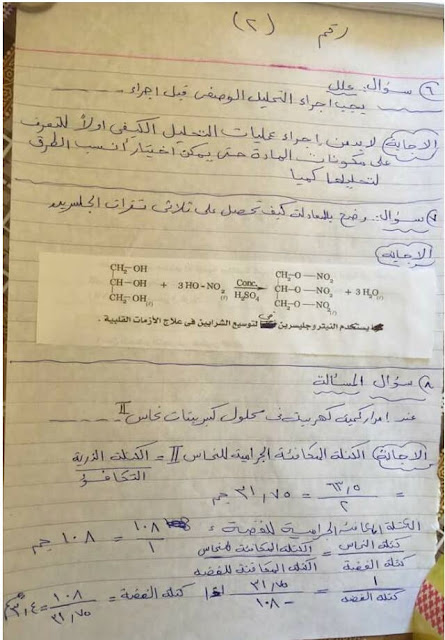 رقم (٢)
٦) سؤال: علل
يجب اجراء التحليل الوصفى قبل اجراء ......
الاجابة لابد من إجراء عمليات التحليل الكيفى اولاً للتعرف
على مكونات المادة حتى يمكن اختيار أنسب الطرق
لتحليلها كميا
٧) سؤال: وضح بالمعادلات كيف تحصل على ثلاثى نترات الجلسرين
الاجابة
CH₂–OH CH₂–O–NO₂
CH–OH + 3HO-NO₂ Conc. H₂SO₄ CH–O–NO₂ + 3H₂O(l)
CH₂–OH(l) CH₂–O–NO₂(l)
يستخدم النيتروجليسرين لتوسيع الشرايين فى علاج الأزمات القلبية .
٨) سؤال المسألة
عند امرار كمية كهربية فى محلول كبريتات نحاس II ......
الاجابة الكتلة المكافئة الجرامية للنحاس II = الكتلة الذرية / التكافؤ
= ٦٣,٥ / ٢ = ٣١,٧٥ جم
الكتلة المكافئة الجرامية للفضة = ١٠٨ / ١ = ١٠٨ جم
كتلة النحاس / كتلة الفضة = الكتلة المكافئة للنحاس / الكتلة المكافئة للفضة
١ / كتلة الفضة = ٣١,٧٥ / ١٠٨
كتلة الفضة = ١٠٨ / ٣١,٧٥ = ٣,٤ جم